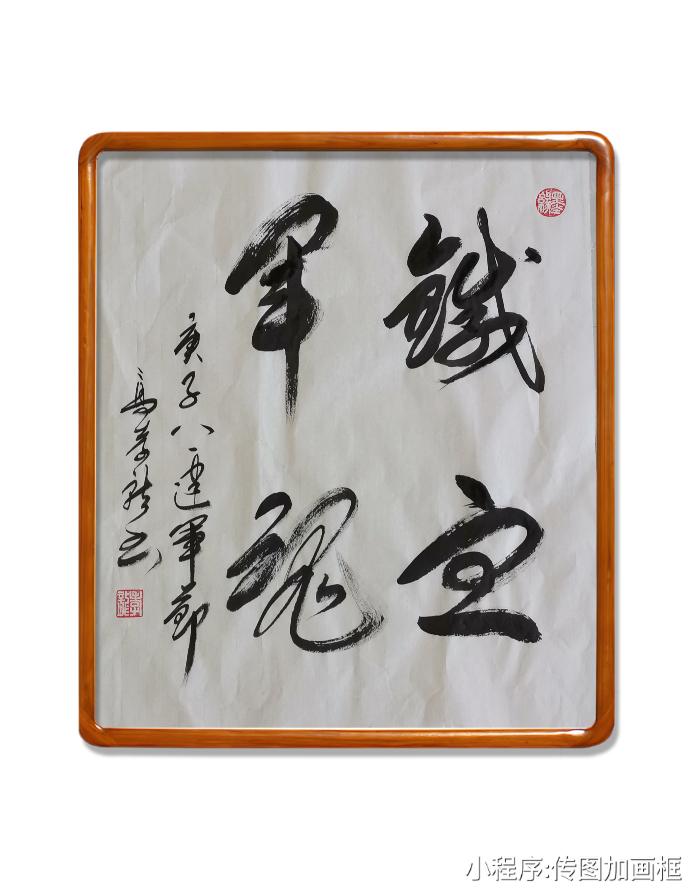 鐵血
軍魂
庚子八一建軍節
高 龍书
小程序:传图加画框